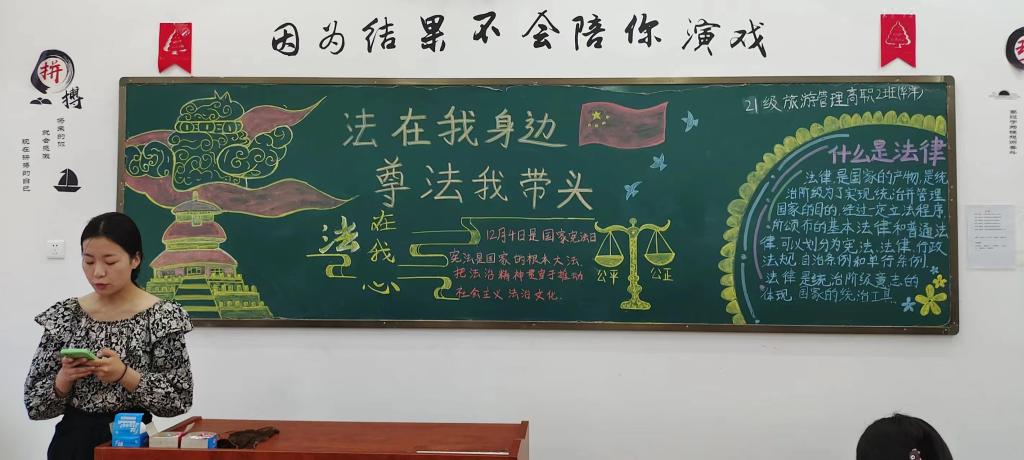 因为结果不会陪你演戏
拼
搏
将来的你
就会感激
现在拼搏的自己
21级旅游管理高职2班(华洋)
法在我身边
尊法我带头
法
在我心
12月4日是国家宪法日
宪法是国家的根本大法,
把法治精神贯穿于推动
社会主义法治文化.
公平
公正
什么是法律
法律是国家的产物,是统
治阶级为了实现统治并管理
国家的目的,经过一定立法程序,
所颁布的基本法律和普通法
律.可以划分为宪法、法律、行政
法规、自治条例和单行条例
法律是统治阶级意志的
体现,国家的统治工具